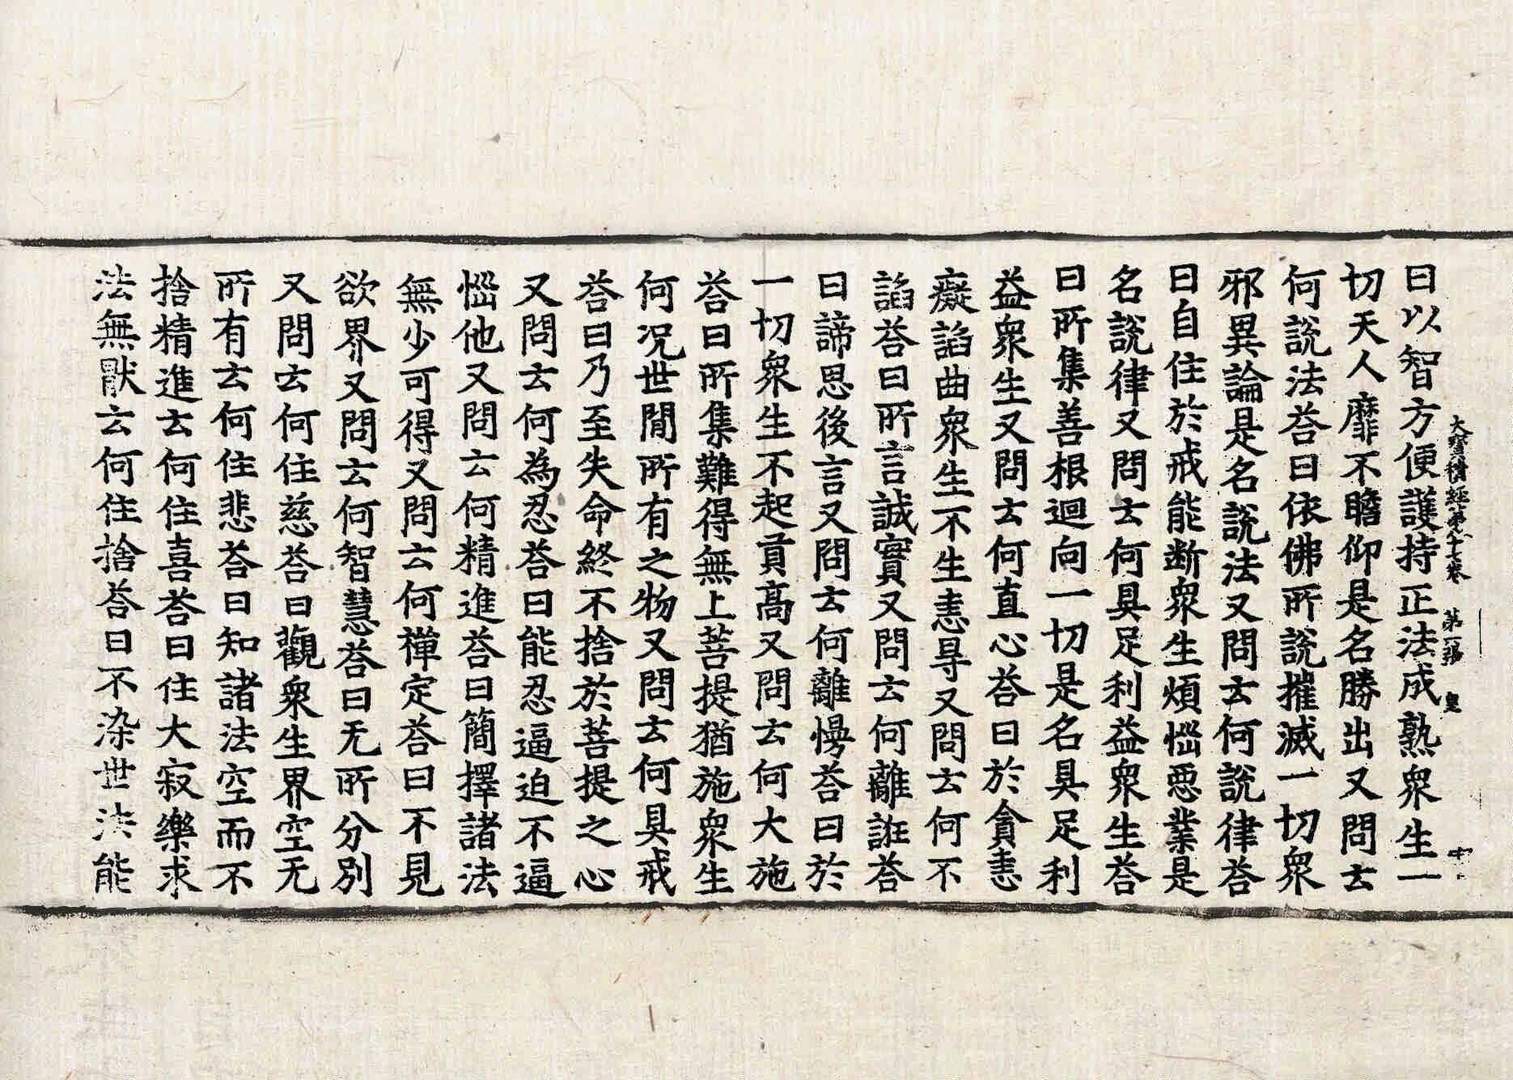 大寶積經第八十七卷 第二張 皇
曰以智方便護持正法成熟衆生一
切天人靡不瞻仰是名勝出又問云
何說法荅曰依佛所說摧滅一切衆
邪異論是名說法又問云何說律荅
曰自住於戒能断衆生煩惱惡業是
名說律又問云何具足利益衆生荅
曰所集善根迴向一切是名具足利
益衆生又問云何直心荅曰於貪恚
癡諂曲衆生不生恚㝵又問云何不
諂荅曰所言誠實又問云何離誑荅
曰諦思後言又問云何離慢荅曰於
一切衆生不起貢高又問云何大施
荅曰所集難得無上菩提猶施衆生
何況世閒所有之物又問云何具戒
荅曰乃至失命終不捨於菩提之心
又問云何為忍荅曰能忍逼迫不逼
惱他又問云何精進荅曰簡擇諸法
無少可得又問云何禪定荅曰不見
欲界又問云何智慧荅曰无所分別
又問云何住慈荅曰觀衆生界空无
所有云何住悲荅曰知諸法空而不
捨精進云何住喜荅曰住大寂樂求
法無猒云何住捨荅曰不染世法能